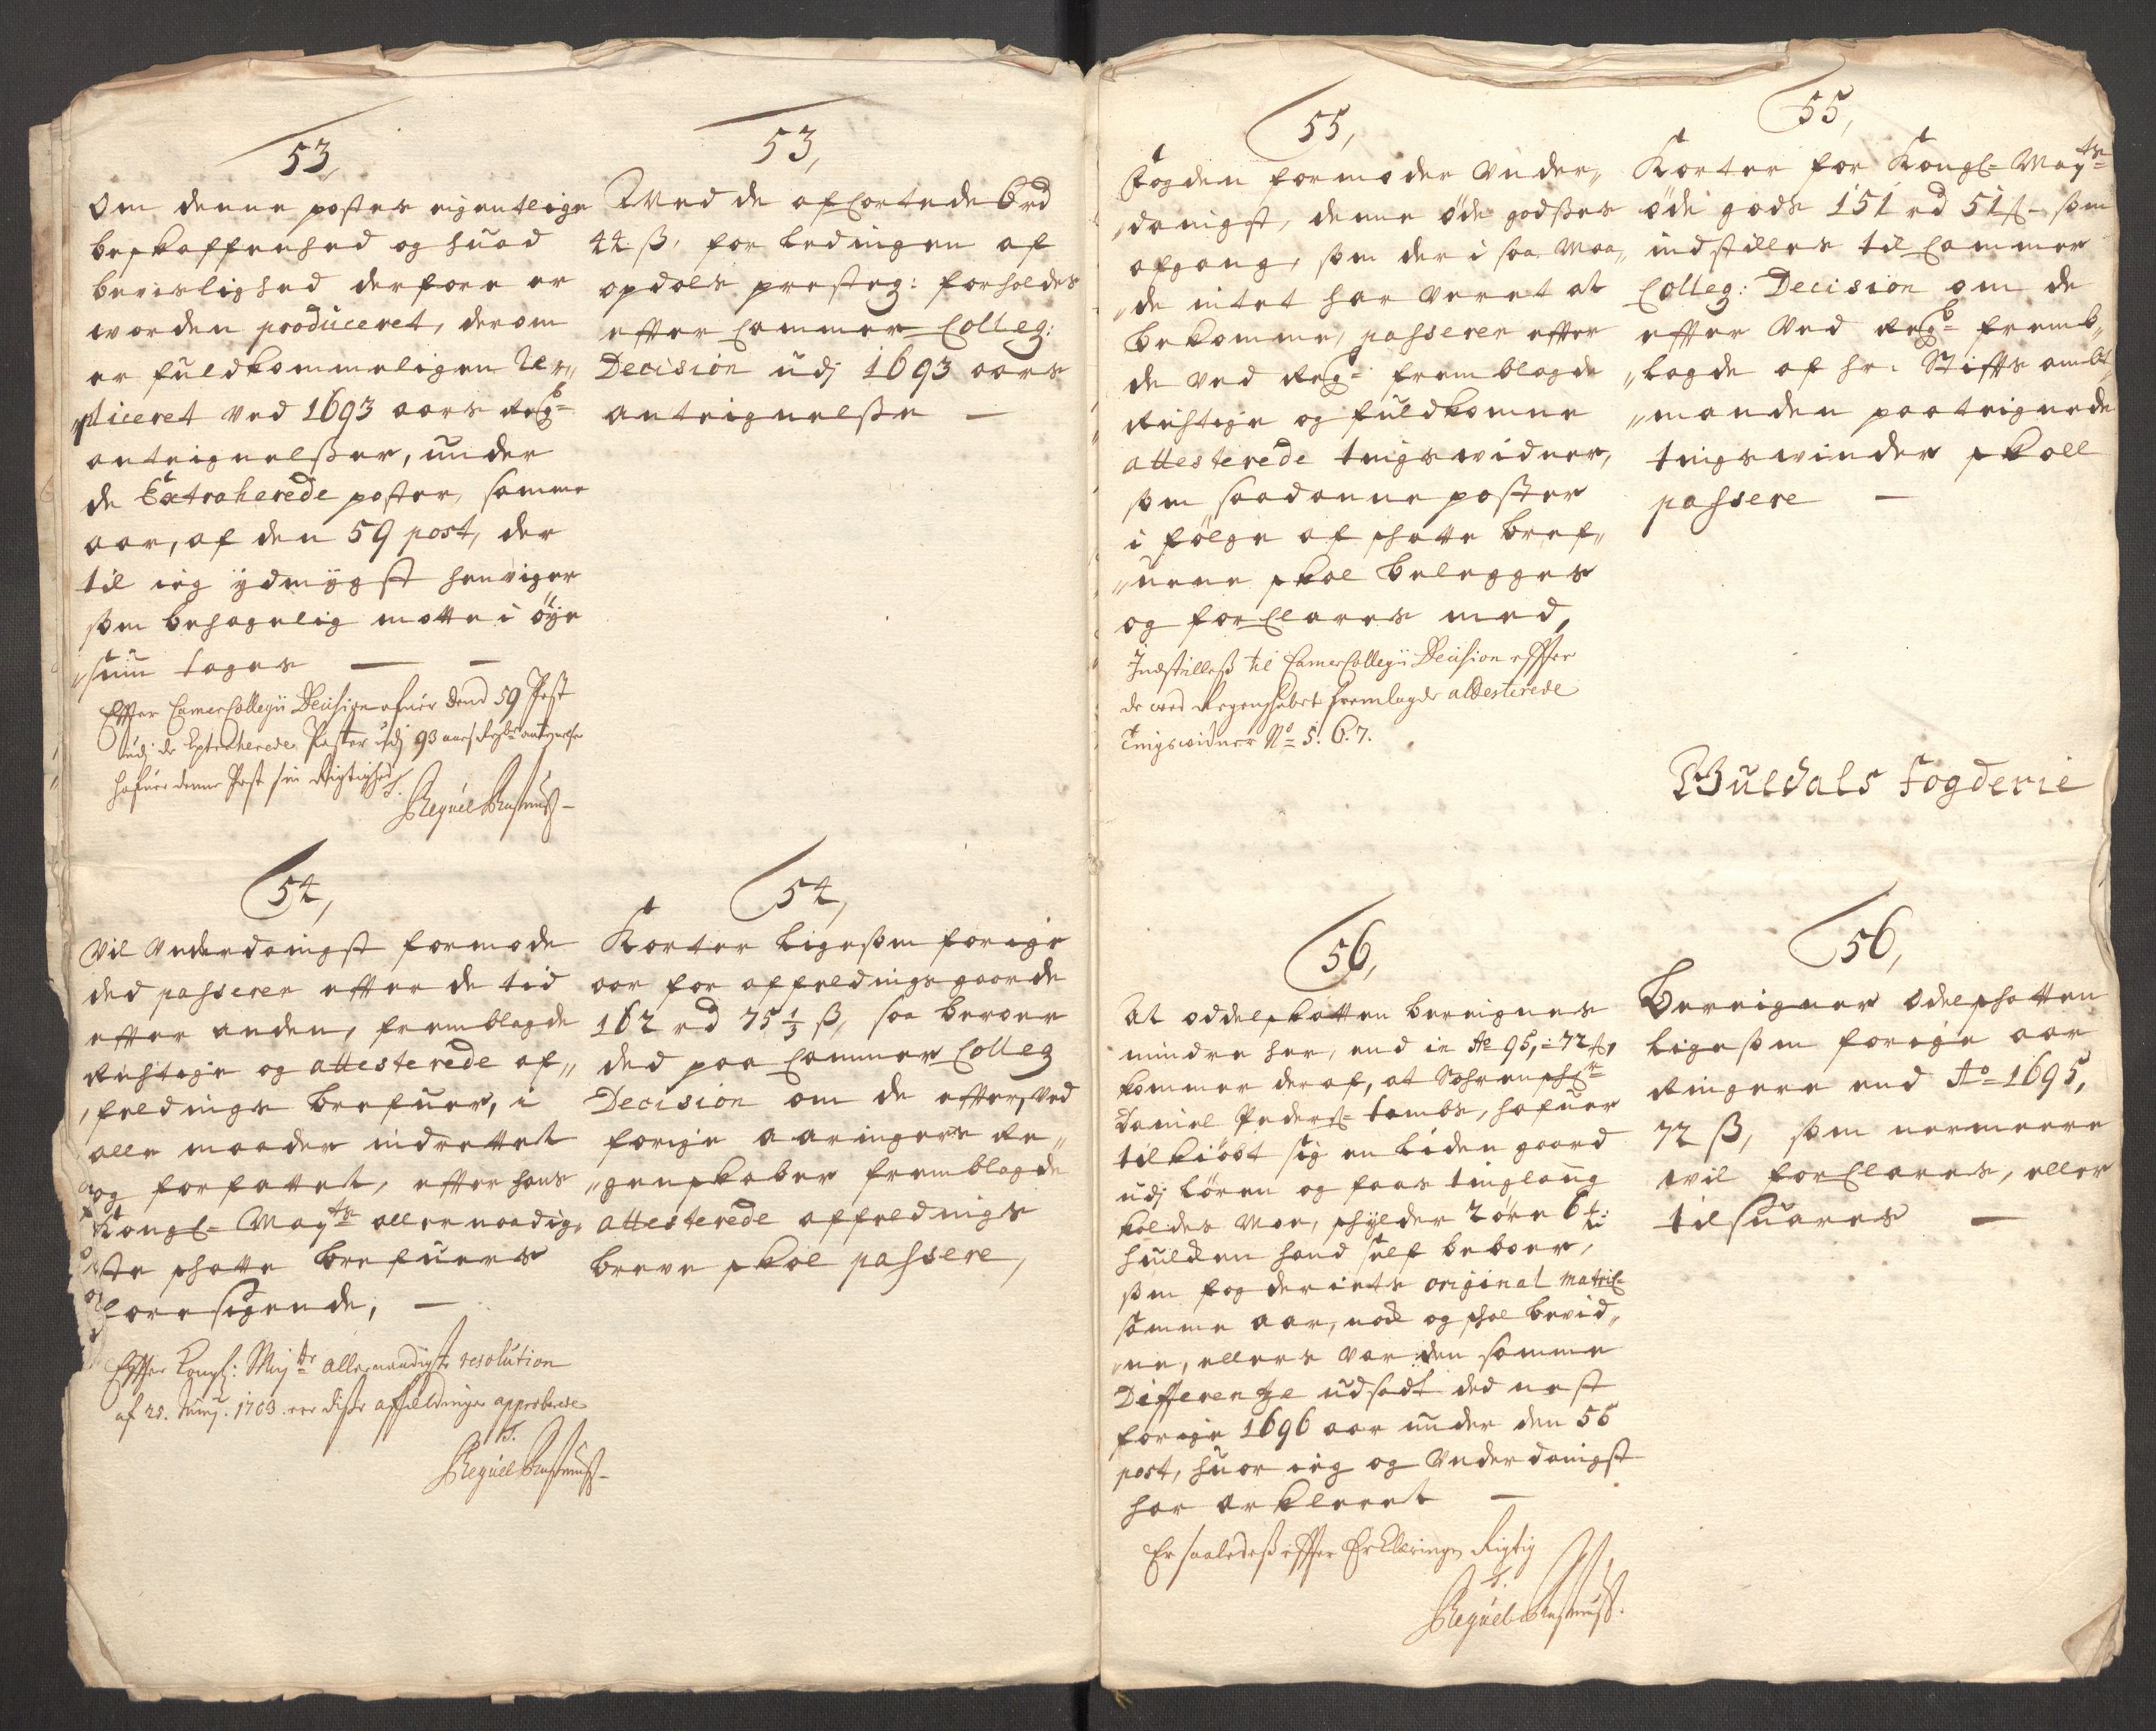 53,
Om denne postes eigentlige
beskaffenhed og huad
bevislighed derfore er
worden produceret, derom
er fuldkommeligen re„
„pliceret ved 1693 aars Regb=
anteignelsser, under
de Extraherede poster, samme
aar, af den 59 post, der
til ieg ÿdmÿgst henviger
som behagelig motte i øÿe
„siun tages —
Effter CamerCollegii Decision ofuer dend 59 Post
udj de Extraherede Poster udj 93 aars Regbs antegnelse
hafuer denne Post sin Rigtighed
53,
Med de afCortede 6 rd
44 ß, for Ledingen af
opdals presteg: forholdes
effter Cammer Colleg:
Decision udj 1693 aars
anteignelsse —
54,
Vil Vnderdanigst formode
ded passerer effter de tid
effter anden, fremblagde
Richtige og attesterede af„
„feldings brefuer, i
alle maader indrettet
og forfattet, effter hans
Kongl= Mayts allernaadig„
ste schatte brefuers
foresigende, —
Effter Kongl: Mayts allernaadigste resolution
af 28. Junij. 1703. ere disse affeldinger approberede
54,
Korter ligesom forige
aar for affeldingsgaarde
162 rd 75 1/3 ß, saa beroer
ded paa Cammer Colleg
Decision om de effter, ved
forige aaringers Re„
„genskaber fremblagde
attesterede affeldnigs
breve skal passere,
55,
Fogden formoder Vnder„
„danigst, denne øde godsses
afgang, som der i saa Maa„
„de intet har veret at
bekomme, passerer effter
de ved Regb= fremblagde
Richtige og fuldkomne
attesterede tingswidner,
som saadanne poster
i følge af schatte bref„
„uene skal belegges
og forClares med,
Indstilleß til CamerCollegii Decision effter
de wed Regenskabet fremlagde attesterede
Tingswidner No= 5. 6. 7.
55,
Korter for Kongl= Mayts=
øde gods 151 rd 51 ß= som
indstilles til Cammer
Colleg: Decision om de
effter ved Regb= fremb„
„lagde af hr: Stiffts ambt
„manden paateignede
tingswinder skall
passere —
Guldals Fogderie
56,
At oddelskatten bereignes
mindre her, end in Ao 95, = 72 ß,
kommer deraf, at
Daniel Peders= tambs, hafuer
tilkiøbt sig en liden gaard
udj Løren og faas tinglaug
kaldes Moe, schÿlder 2 øre 6
huilcken hand self beboer,
som fogderiets original Matric=
samme aar, nock og schal bevid„
„ne, ellers var den samme
Differentze udsadt ded nest
forige 1696 aar under den 56
post, huor ieg og Vnderdanigst
har erkleret —
Er saaledeß effter Erklæringen Rigtig
56,
Bereigner odelschatten
ligesom forige aar
Ringere end Ao= 1695,
72 ß, som nermeere
wil forClares, eller
tilsuares —